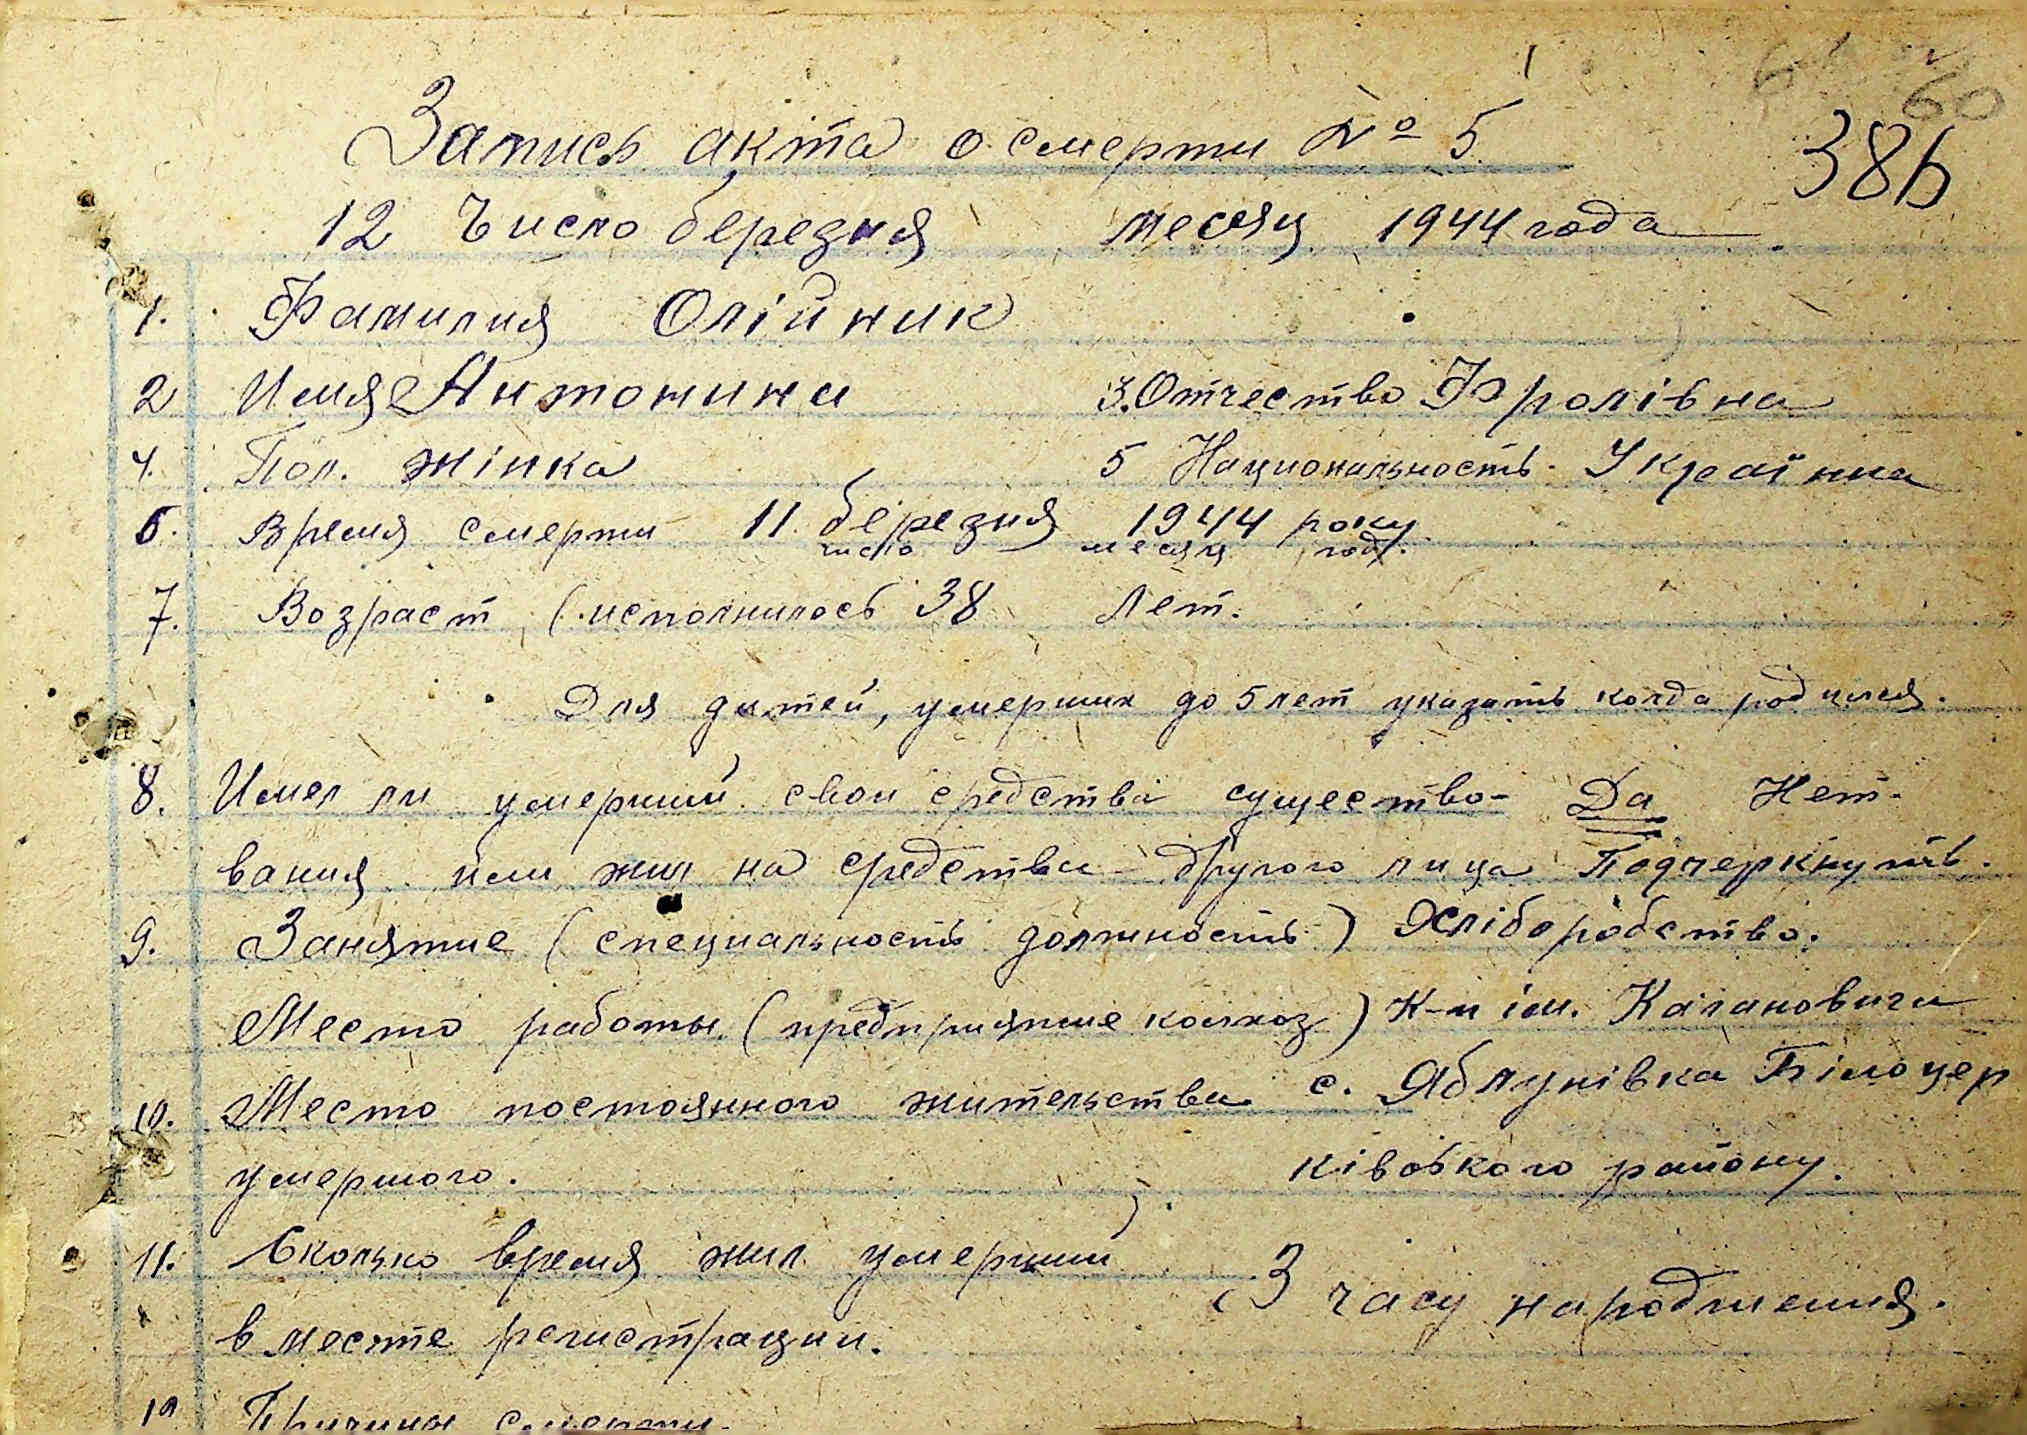 60
386
Запись акта о смерти № 5.
12 Число березня месяц 1944 года
1. Фамилия Олійник
2 Имя Антонина 3. Отчество Фролівна
4. Пол. жінка 5 Национальность. Українка
6. Время смерти 11 березня 1944 року
число месяц год.
7. Возраст (исполнилось 38 лет.
Для детей, умерших до 5 лет указать когда родился.
8. Имел ли умерший свои средства существо- Да Нет.
вания или жил на средства другого лица Подчеркнуть.
9. Занятие (специальность должность) Хліборобство.
Место работы (предприятие колхоз) К-п ім. Кагановича
10. Место постоянного жительства с. Яблунівка Білоцер
умершого. ківського району.
11. Сколько время жил умерший З часу народження.
в месте регистрации.
12 Причины смерти.